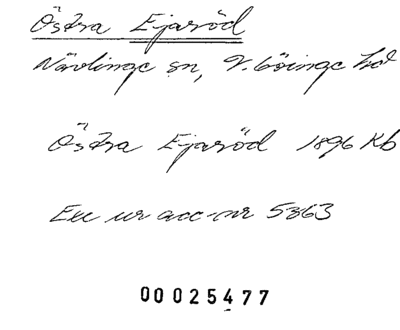 Östra Ejaröd
Nävlinge sn, V. Göinge hd
Östra Ejaröd 1896 Kb
Exc ur acc-nr 5363
00025477